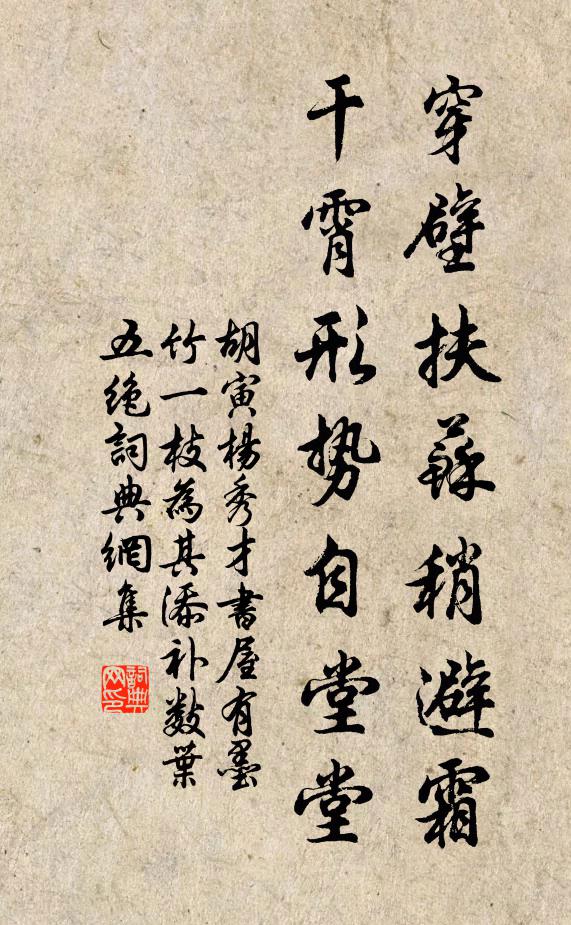 穿壁扶蘇稍避霜
干霄形势自堂堂
胡寅楊秀才書屋有墨
竹一枝為其添补数葉
五絶詞典網集
詞典网印